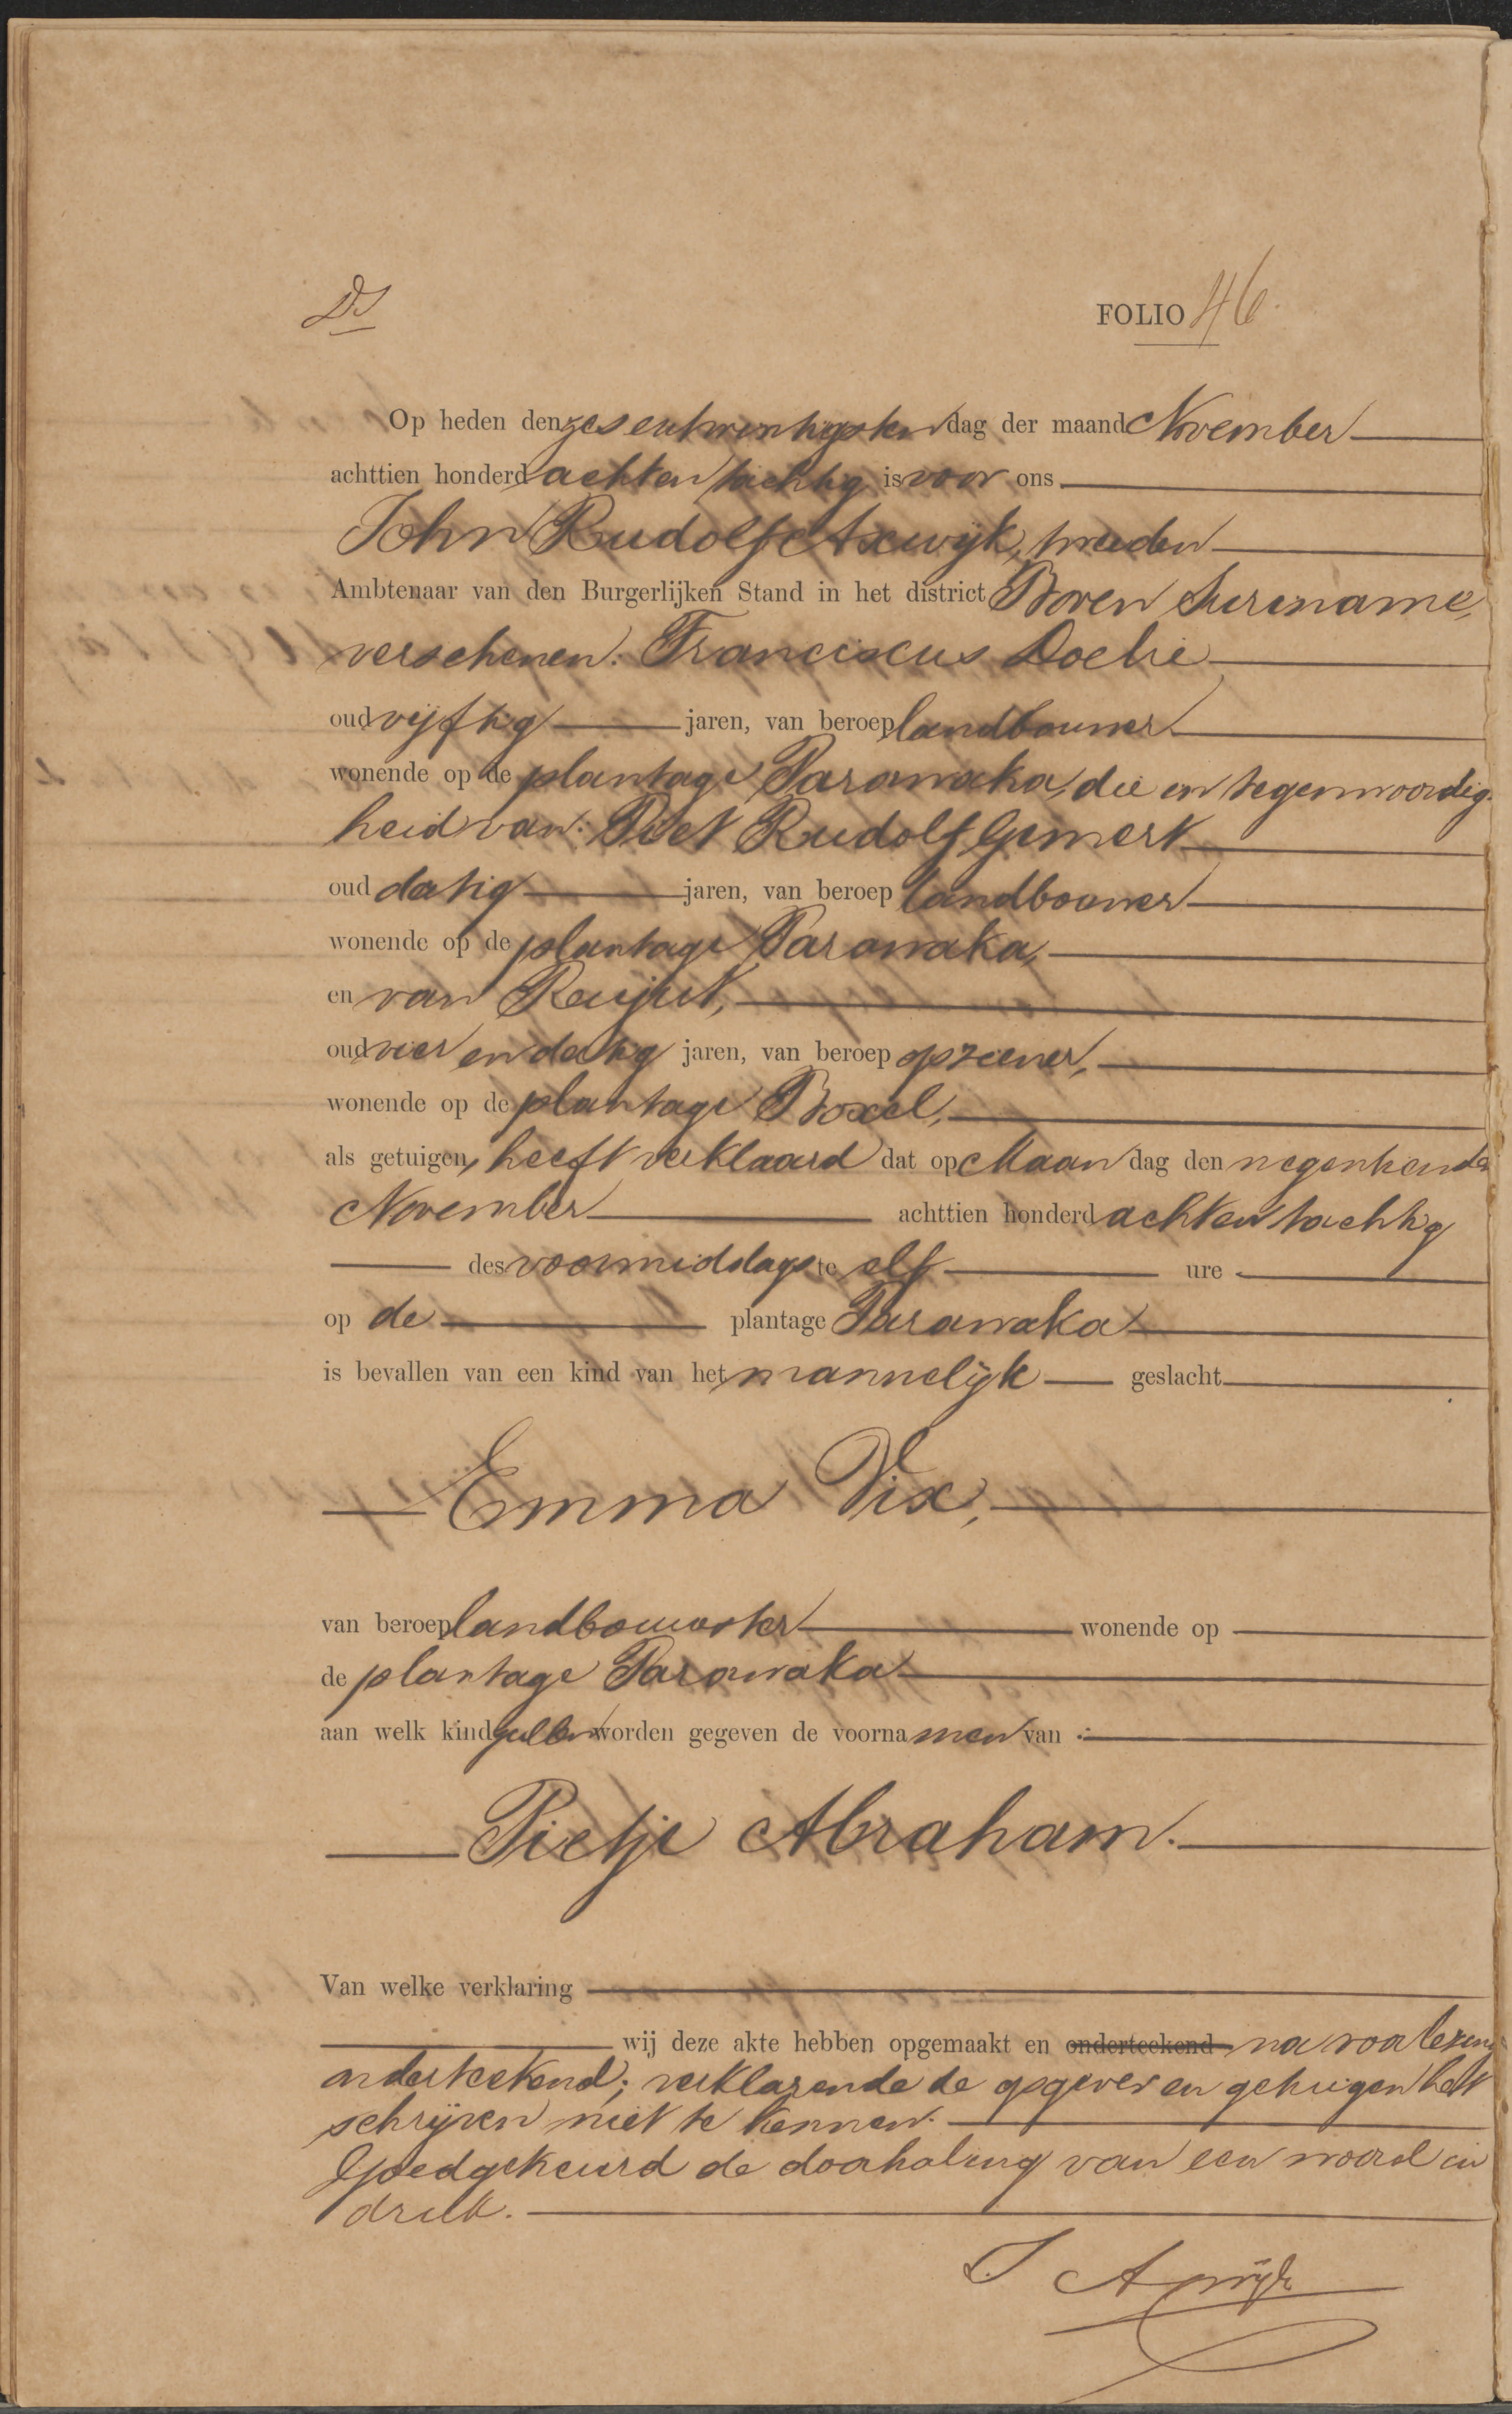 DS
FOLIO 46.
Op heden den zesentwintigsten dag der maand November
achttien honderd achtentachtig is voor ons
John Rudolf Axwijk, tweeden
Ambtenaar van den Burgerlijken Stand in het district Boven Suriname,
verschenen: Franciscus Doelie
oud vijftig jaren, van beroep landbouwer
wonende op de plantage Parawaka, die en tegenwoordig-
heid van: Piet Rudolf Gemert
oud datig jaren, van beroep landbouwer
wonende op de plantage Parawaka,
en van
oud vier en datig jaren, van beroep opziener,
wonende op de plantage Boxel,
als getuigen, heeft verklaard dat op Maandag den negentienden
November achttien honderd achtentachtig
des voormiddags te elf ure
op de plantage Parawaka
is bevallen van een kind van het mannelijk geslacht
Emma Vix,
van beroep landbouwster wonende op
de plantage Parawaka
aan welk kind zullen worden gegeven de voornamen van:
Pietje Abraham.
Van welke verklaring
wij deze akte hebben opgemaakt en onderteekend na voorlezing
onderteekend; verklarende de opgever en getuigen het
schrijven niet te kennen.
Goedgekeurd de doorhaling van een woord in
druk.
J Axwijk